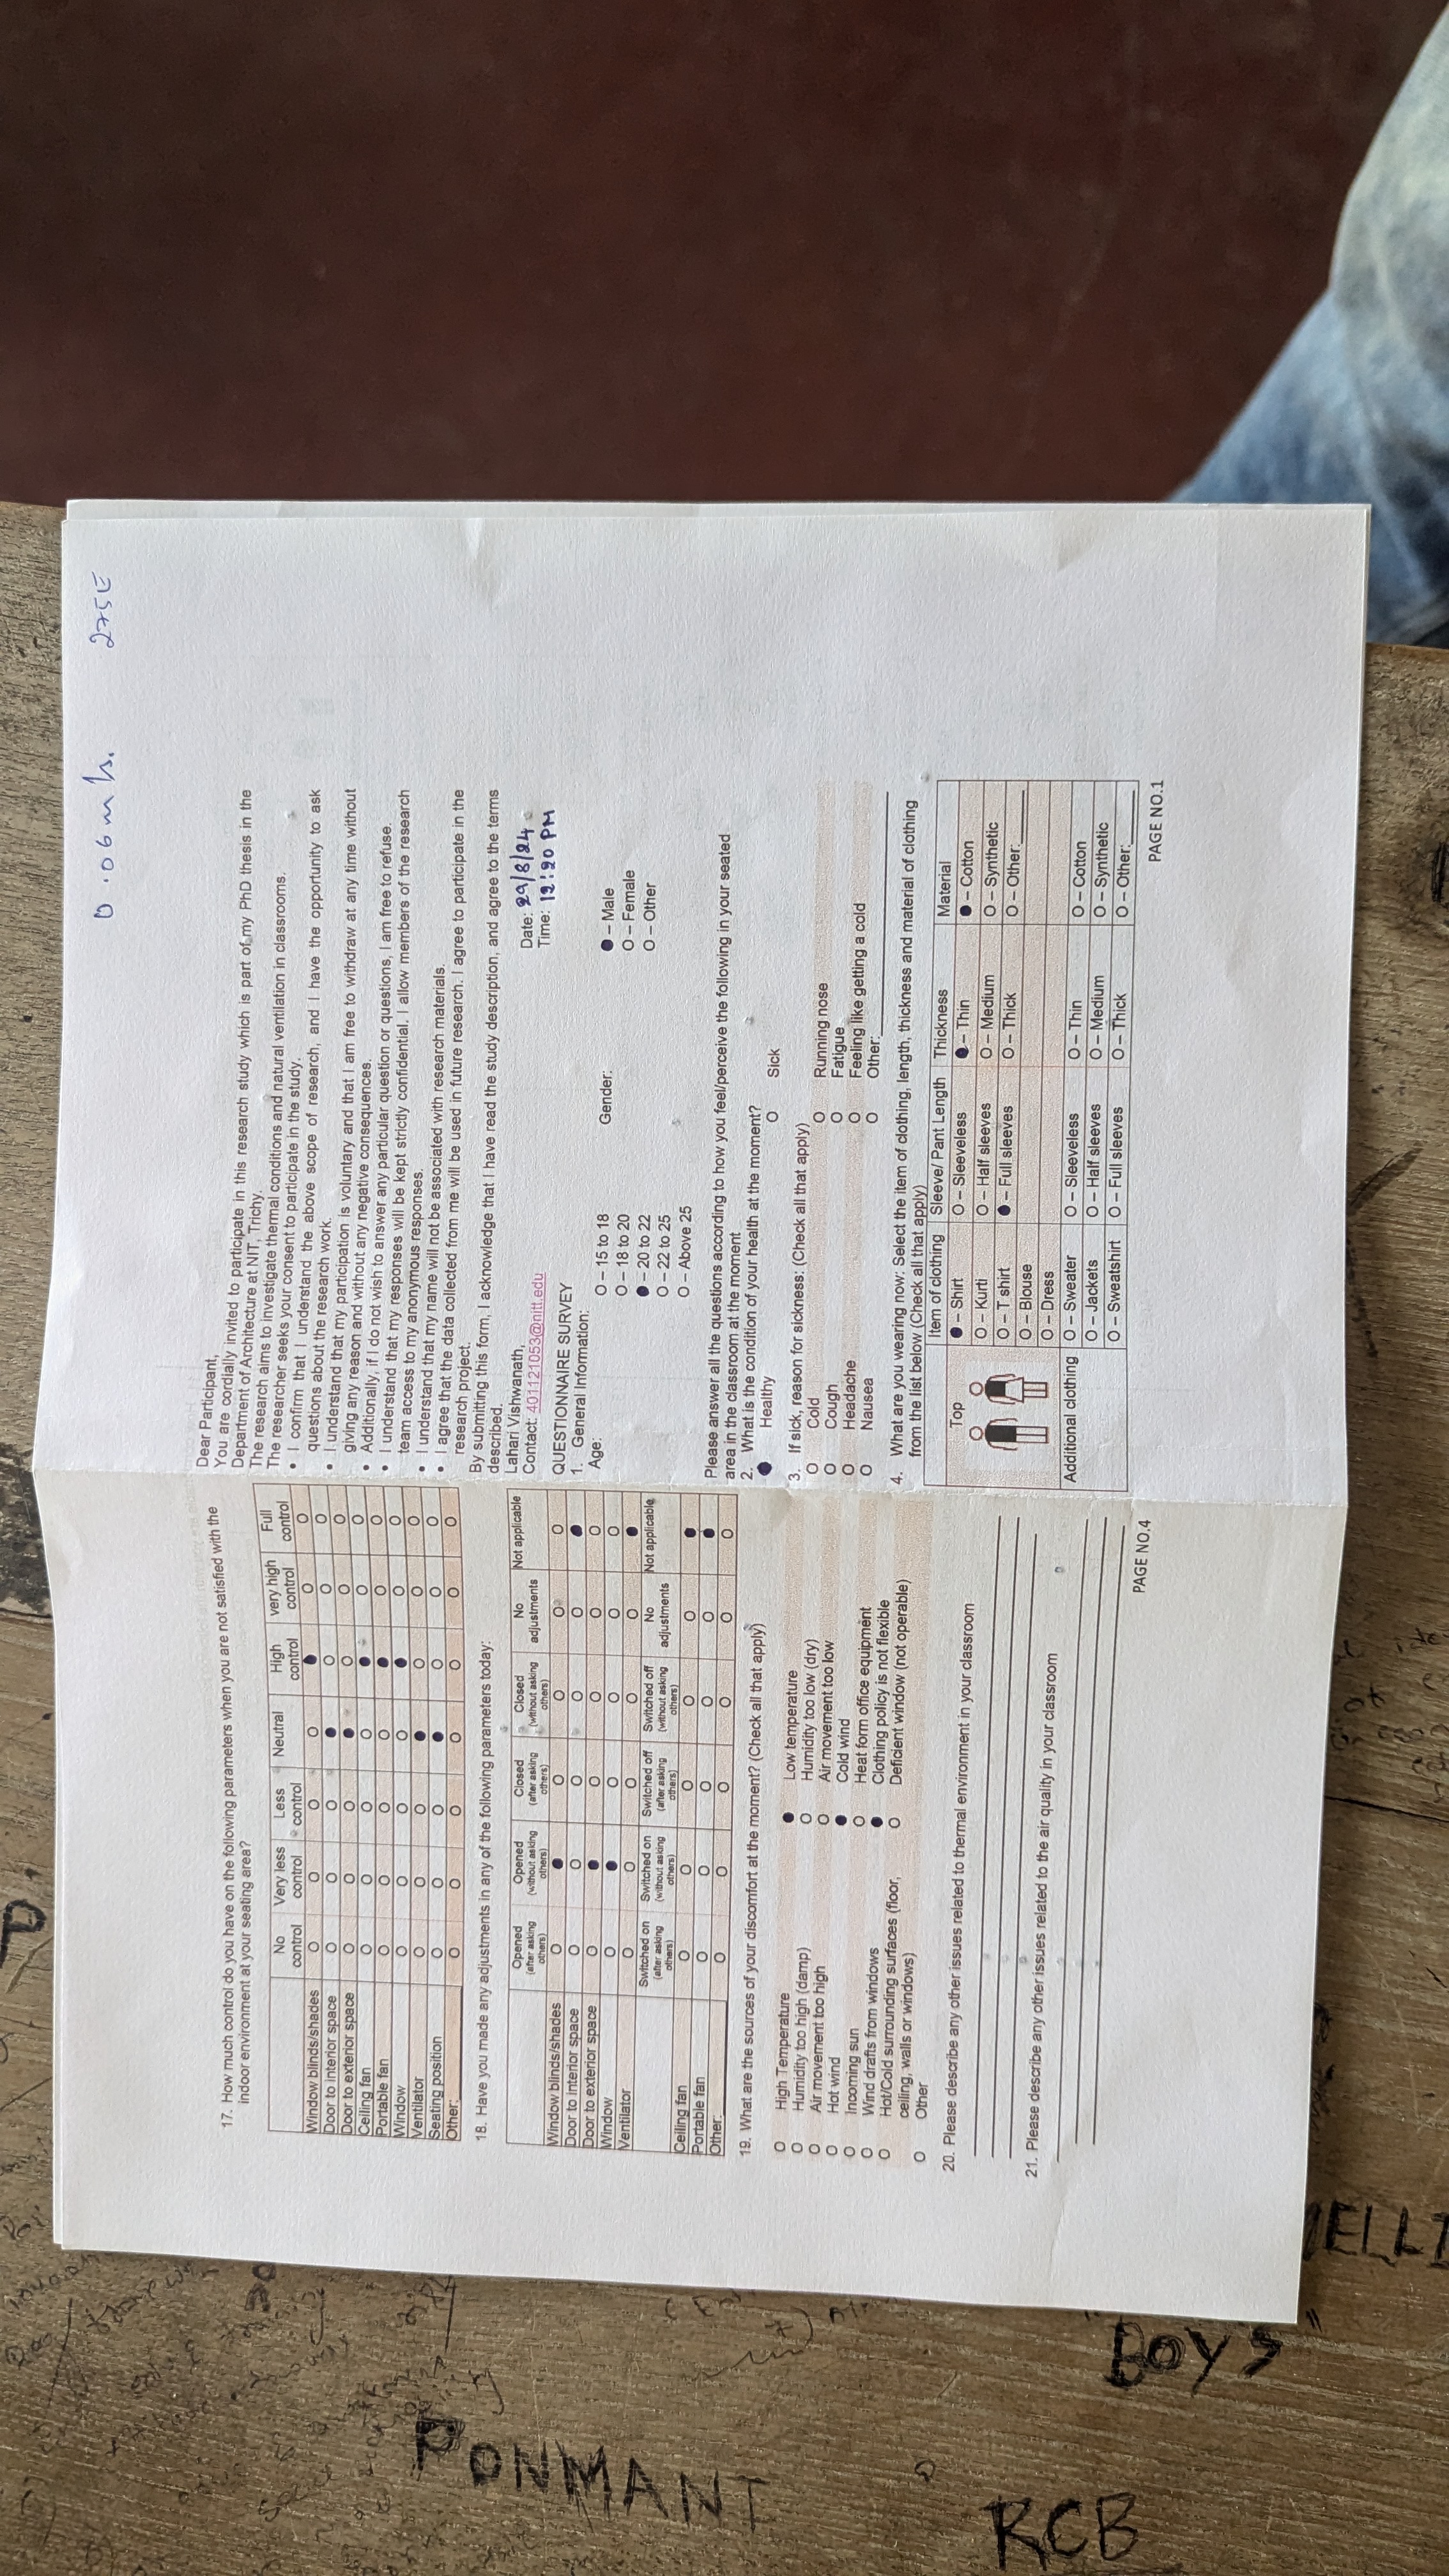 0.06m/s. 275E
17. How much control do you have on the following parameters when you are not satisfied with the
indoor environment at your seating area?
No control Very less control Less control Neutral High control very high control Full control
Window blinds/shades O O O O ● O O
Door to interior space O O O ● O O O
Door to exterior space O O O ● O O O
Ceiling fan O O O O ● O O
Portable fan O O O O ● O O
Window O O O O ● O O
Ventilator O O O ● O O O
Seating position O O O ● O O O
Other:________ O O O O O O O
18. Have you made any adjustments in any of the following parameters today:
Opened (after asking others) Opened (without asking others) Closed (after asking others) Closed (without asking others) No adjustments Not applicable
Window blinds/shades O ● O O O O
Door to interior space O O O O O ●
Door to exterior space O ● O O O O
Window O ● O O O O
Ventilator O O O O O ●
Switched on (after asking others) Switched on (without asking others) Switched off (after asking others) Switched off (without asking others) No adjustments Not applicable
Ceiling fan O O O O O ●
Portable fan O O O O O ●
Other:________ O O O O O O
19. What are the sources of your discomfort at the moment? (Check all that apply)
O High Temperature ● Low temperature
O Humidity too high (damp) O Humidity too low (dry)
O Air movement too high O Air movement too low
O Hot wind ● Cold wind
O Incoming sun O Heat form office equipment
O Wind drafts from windows ● Clothing policy is not flexible
O Hot/Cold surrounding surfaces (floor, O Deficient window (not operable)
ceiling, walls or windows)
O Other
20. Please describe any other issues related to thermal environment in your classroom
21. Please describe any other issues related to the air quality in your classroom
PAGE NO.4
Dear Participant,
You are cordially invited to participate in this research study which is part of my PhD thesis in the
Department of Architecture at NIT, Trichy.
The research aims to investigate thermal conditions and natural ventilation in classrooms.
The researcher seeks your consent to participate in the study.
• I confirm that I understand the above scope of research, and I have the opportunity to ask
questions about the research work.
• I understand that my participation is voluntary and that I am free to withdraw at any time without
giving any reason and without any negative consequences.
• Additionally, if I do not wish to answer any particular question or questions, I am free to refuse.
• I understand that my responses will be kept strictly confidential. I allow members of the research
team access to my anonymous responses.
• I understand that my name will not be associated with research materials.
• I agree that the data collected from me will be used in future research. I agree to participate in the
research project.
By submitting this form, I acknowledge that I have read the study description, and agree to the terms
described.
Lahari Vishwanath,
Contact: 401121053@nitt.edu
Date: 29/8/24
Time: 12:20 PM
QUESTIONNAIRE SURVEY
1. General Information:
Age: O – 15 to 18 Gender: ● – Male
O – 18 to 20 O – Female
● – 20 to 22 O – Other
O – 22 to 25
O – Above 25
Please answer all the questions according to how you feel/perceive the following in your seated
area in the classroom at the moment
2. What is the condition of your health at the moment?
● Healthy O Sick
3. If sick, reason for sickness: (Check all that apply)
O Cold O Running nose
O Cough O Fatigue
O Headache O Feeling like getting a cold
O Nausea O Other:________
4. What are you wearing now: Select the item of clothing, length, thickness and material of clothing
from the list below (Check all that apply)
Item of clothing Sleeve/ Pant Length Thickness Material
Top ● – Shirt O – Sleeveless ● – Thin ● – Cotton
O – Kurti O – Half sleeves O – Medium O – Synthetic
O – T shirt ● – Full sleeves O – Thick O – Other:______
O – Blouse
O – Dress
Additional clothing O – Sweater O – Sleeveless O – Thin O – Cotton
O – Jackets O – Half sleeves O – Medium O – Synthetic
O – Sweatshirt O – Full sleeves O – Thick O – Other:______
PAGE NO.1
PONMANI
RCB
BOYS